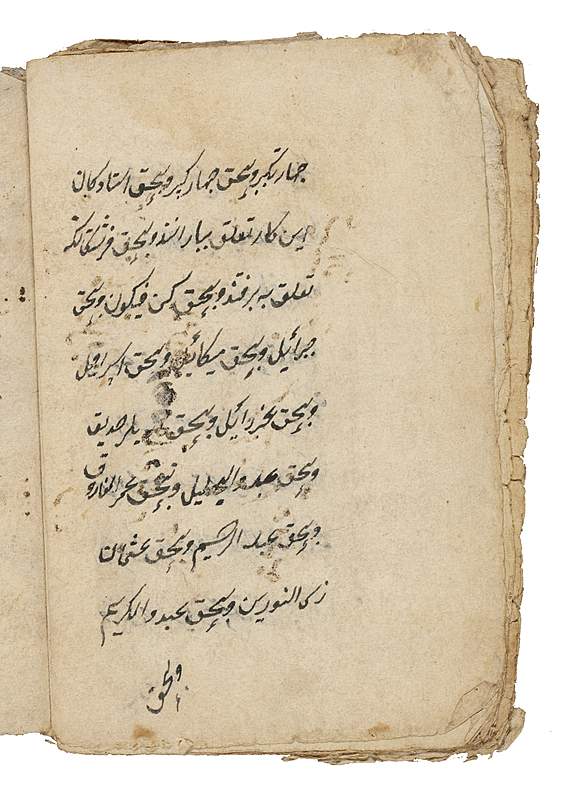 چهار تکبیر و بحق چهار کبر و بحق استادکان
این کار تعلق ببار انند و بحق فرشتگانکه
تعلق به برفند و بحق کن فیکون و بحق
جبرائیل و بحق میکائیل و بحق اسرافیل
و بحق عزرائیل و بحق صدیق
و بحق عبد الجلیل و بحق عمر الفاروق
و بحق عبد الرحیم و بحق عثمان
زی النورین و بحق عبد والکریم
و بحق